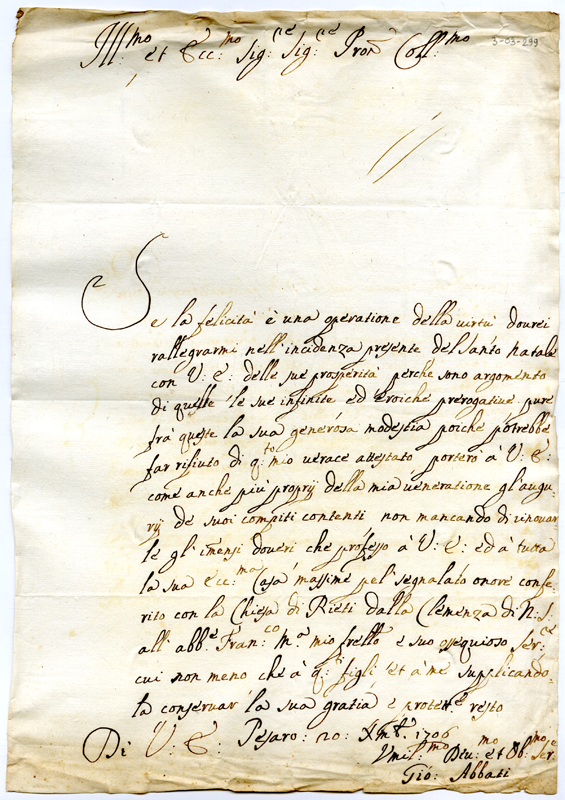 Ill:mo et Ecc:mo Sig:re Sig:re Pron Coll:mo
3-03-299
Se la felicità è una operatione della virtù dourei
rallegrarmi nell'incidenza presente del Santo Natale
con V: E: delle sue prosperità perche sono argomento
di quelle le sue infinite ed eroiche prerogatiue pure
frà queste la sua generosa modestia poiche potrebbe
far rifiuto di q:to mio uerace attestato porterò à V: E:
come anche più proprij della mia ueneratione gl'augu
rij de suoi compiti contenti non mancando di rinouar
le gl'im̃ensi doueri che professo à V: E: ed à tutta
la sua Ecc:ma Casa massime pel segnalato onore confe
rito con la Chiesa di Rieti dalla Clemenza di N: S:
all'abb:e Fran:co M:a mio frello e suo ossequioso Ser:re
cui non meno che à q:ti figli et à me supplicando
la conseruar la sua gratia e protett:e resto
Di V: E: Pesaro 20: Xmb:e 1706
Vmil:mo Diu:mo et Ob:mo Ser:e
Gio: Abbati